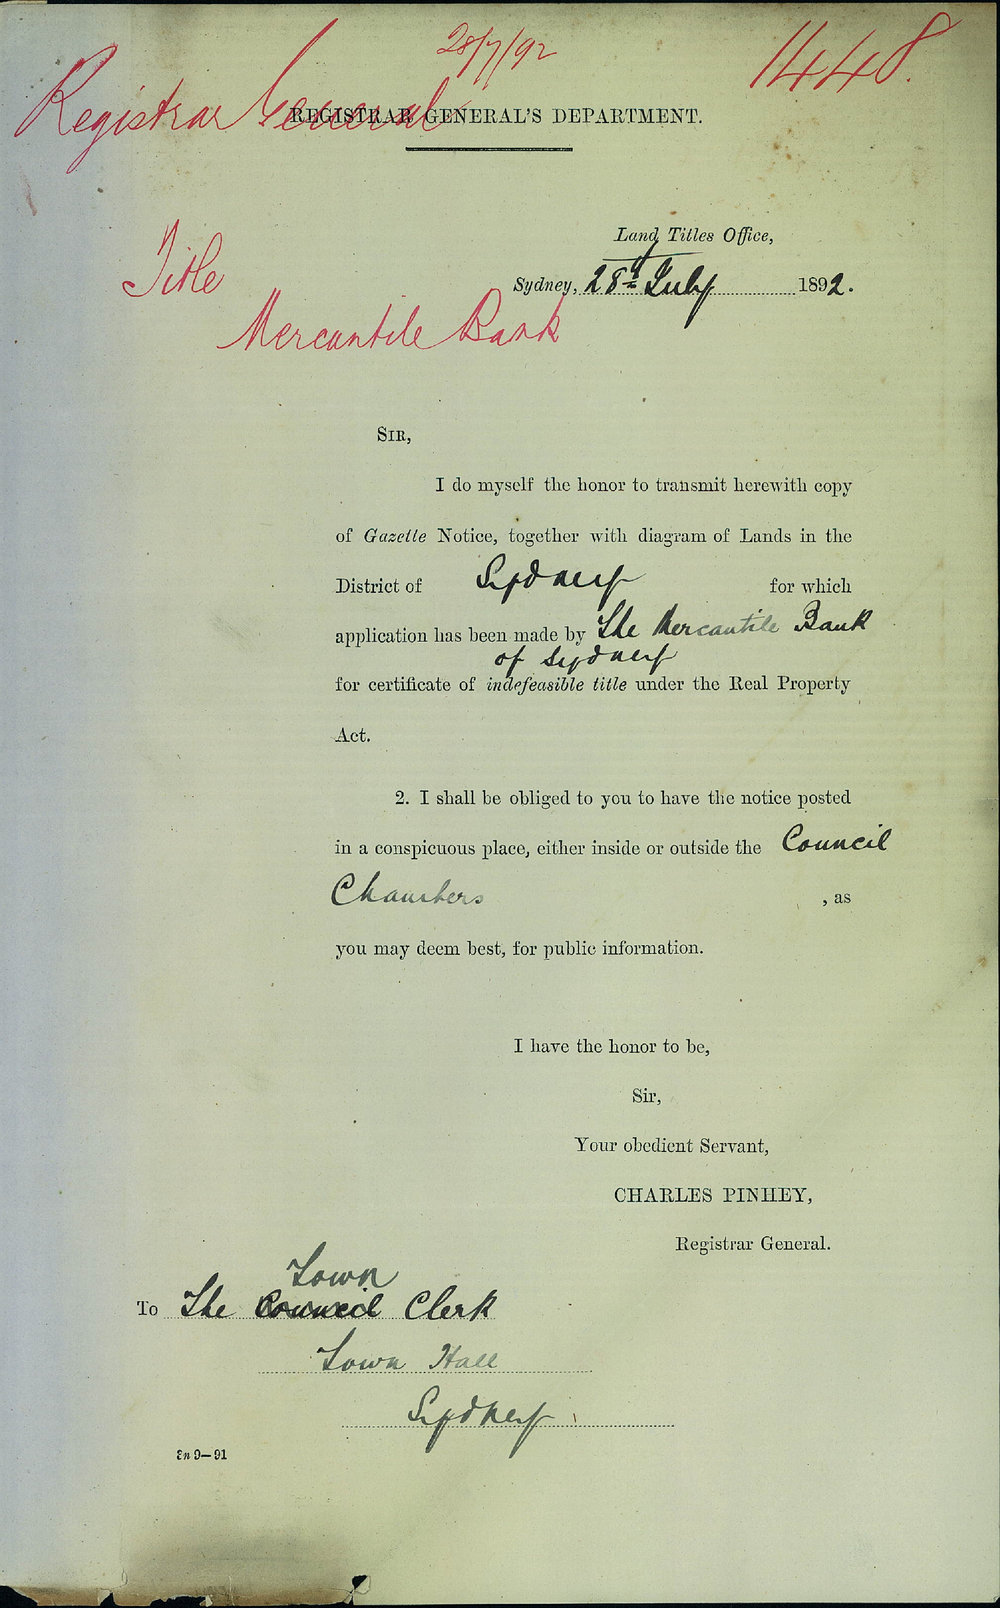 28/7/92
1448.
Registrar General
REGISTRAR GENERAL'S DEPARTMENT.
Land Titles Office,
Title
Sydney, 28th July 1892.
Mercantile Bank
SIR,
I do myself the honor to transmit herewith copy
of Gazette Notice, together with diagram of Lands in the
District of Sydney for which
application has been made by The Mercantile Bank
of Sydney
for certificate of indefeasible title under the Real Property
Act.
2. I shall be obliged to you to have the notice posted
in a conspicuous place, either inside or outside the Council
Chambers , as
you may deem best, for public information.
I have the honor to be,
Sir,
Your obedient Servant,
CHARLES PINHEY,
Registrar General.
Town
To The Council Clerk
Town Hall
Sydney
9—91